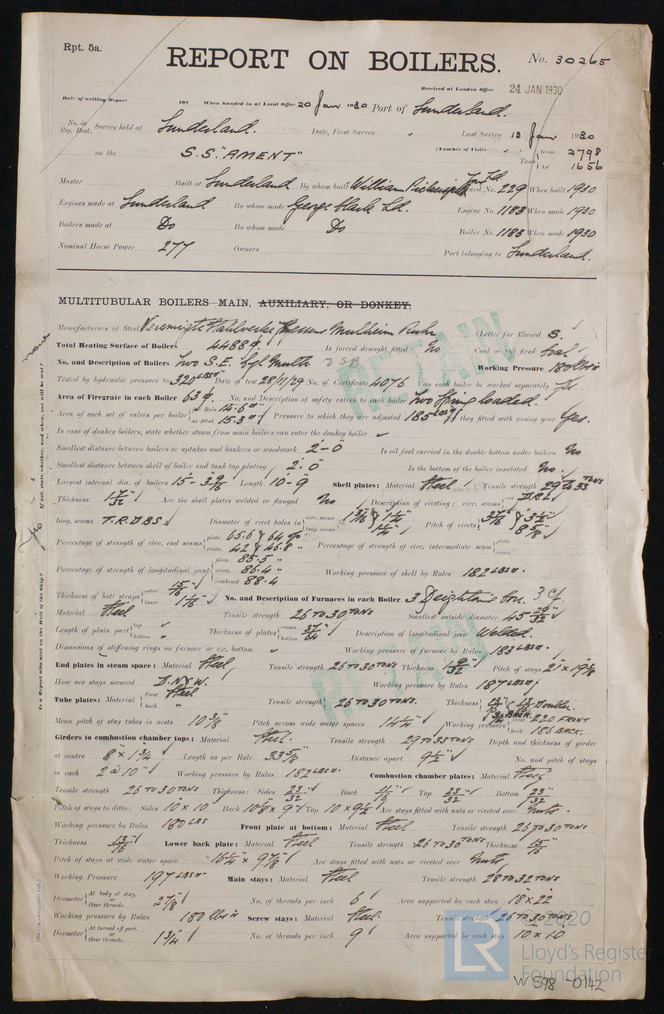 Rpt. 5a.
REPORT ON BOILERS.
No. 30265
Received at London Office 24 JAN 1930
Date of writing Report 192 When handed in at Local Office 20 Jan 1930 Port of Sunderland.
No. in Reg. Book. Survey held at Sunderland. Date, First Survey Last Survey 13 Jan 1930
on the S.S. "AMENT" (Number of Visits Gross 2798
Tons Net 1656
Master Built at Sunderland By whom built William Pickersgill Yard No. 229 When built 1930
Engines made at Sunderland By whom made George Clark Ld. Engine No. 1183 When made 1930
Boilers made at Do By whom made Do Boiler No. 1183 When made 1930
Nominal Horse Power 277 Owners Port belonging to Sunderland.
MULTITUBULAR BOILERS MAIN, AUXILIARY, OR DONKEY.
Manufacturers of Steel Mulheim Ruhr (Letter for Record S.
Total Heating Surface of Boilers 4488 Is forced draught fitted No Coal or Oil fired Coal
No. and Description of Boilers Two S.E. 2SB Working Pressure 180 lbs
Tested by hydraulic pressure to 320 LBS Date of test 28/11/29 No. of Certificate 4076 Can each boiler be worked separately Yes
Area of Firegrate in each Boiler 63 No. and Description of safety valves to each boiler Two Spring loaded.
Area of each set of valves per boiler per Rule 14.6 as fitted 15.3 Pressure to which they are adjusted 185 LBS Are they fitted with easing gear Yes.
In case of donkey boilers, state whether steam from main boilers can enter the donkey boiler
Smallest distance between boilers or uptakes and bunkers or woodwork 2'-0" Is oil fuel carried in the double bottom under boilers No
Smallest distance between shell of boiler and tank top plating 2'-0" Is the bottom of the boiler insulated No.
Largest internal dia. of boilers Length 10-9 Shell plates: Material Steel Tensile strength 29 TO 33 TONS
Thickness Are the shell plates welded or flanged No Description of riveting: circ. seams end D.R.L.
long. seams T.R.D.B.S. Diameter of rivet holes in circ. seams long. seams Pitch of rivets
Percentage of strength of circ. end seams plate 65.6 & 64 rivets 42 & 46.8 Percentage of strength of circ. intermediate seam plate rivets
Percentage of strength of longitudinal joint plate 85.5 rivets 86.4 combined 88.4 Working pressure of shell by Rules 182 LBS
Thickness of butt straps outer 15/16 inner 1 1/16 No. and Description of Furnaces in each Boiler 3 Deighton 3 cf
Material Steel Tensile strength 26 TO 30 TONS Smallest outside diameter
Length of plain part top bottom Thickness of plates crown bottom 37/64 Description of longitudinal joint Welded.
Dimensions of stiffening rings on furnace or c.c. bottom Working pressure of furnace by Rules 183 LBS
End plates in steam space: Material Steel Tensile strength 26 TO 30 TONS Thickness Pitch of stays
How are stays secured D.N & W. Working pressure by Rules 187 LBS
Tube plates: Material front back Steel Tensile strength 26 TO 30 TONS. Thickness
Mean pitch of stay tubes in nests 10 3/8 Pitch across wide water spaces 14 1/4 Working pressure front 220 FRONT back 186 BACK.
Girders to combustion chamber tops: Material Steel. Tensile strength 29 TO 33 TONS Depth and thickness of girder
at centre 8" x 1 3/4 Length as per Rule 33 5/8 Distance apart 9 1/2" No. and pitch of stays
in each 2 @ 10" Working pressure by Rules 182 LBS Combustion chamber plates: Material Steel
Tensile strength 26 TO 30 TONS Thickness: Sides 23/32 Back 11/16 Top 23/32 Bottom 23/32
Pitch of stays to ditto: Sides 10 x 10 Back 10 1/8 x 9 Top 10 x 9 1/2 Are stays fitted with nuts or riveted over Nuts.
Working pressure by Rules 180 LBS Front plate at bottom: Material Steel Tensile strength 26 TO 30 TONS
Thickness 15/16 Lower back plate: Material Steel Tensile strength 26 TO 30 TONS Thickness 15/16
Pitch of stays at wide water space Are stays fitted with nuts or riveted over Nuts
Working Pressure 197 LBS Main stays: Material Steel Tensile strength 28 TO 32 TONS
Diameter At body of stay, or Over threads 2 7/8 No. of threads per inch 6 Area supported by each stay 18 x 22
Working pressure by Rules 180 Screw stays: Material Steel. Tensile strength 26 TO 30 TONS
Diameter At turned off part, or Over threads 1 3/4 No. of threads per inch 9 Area supported by each stay 10 x 10
© 2020
LR
Lloyd's Register
Foundation
W598-0142
RETAIN
RETAIN
Is a Report also sent on the Hull of the Ship? Yes
If not, state whether, and when, one will be sent? none